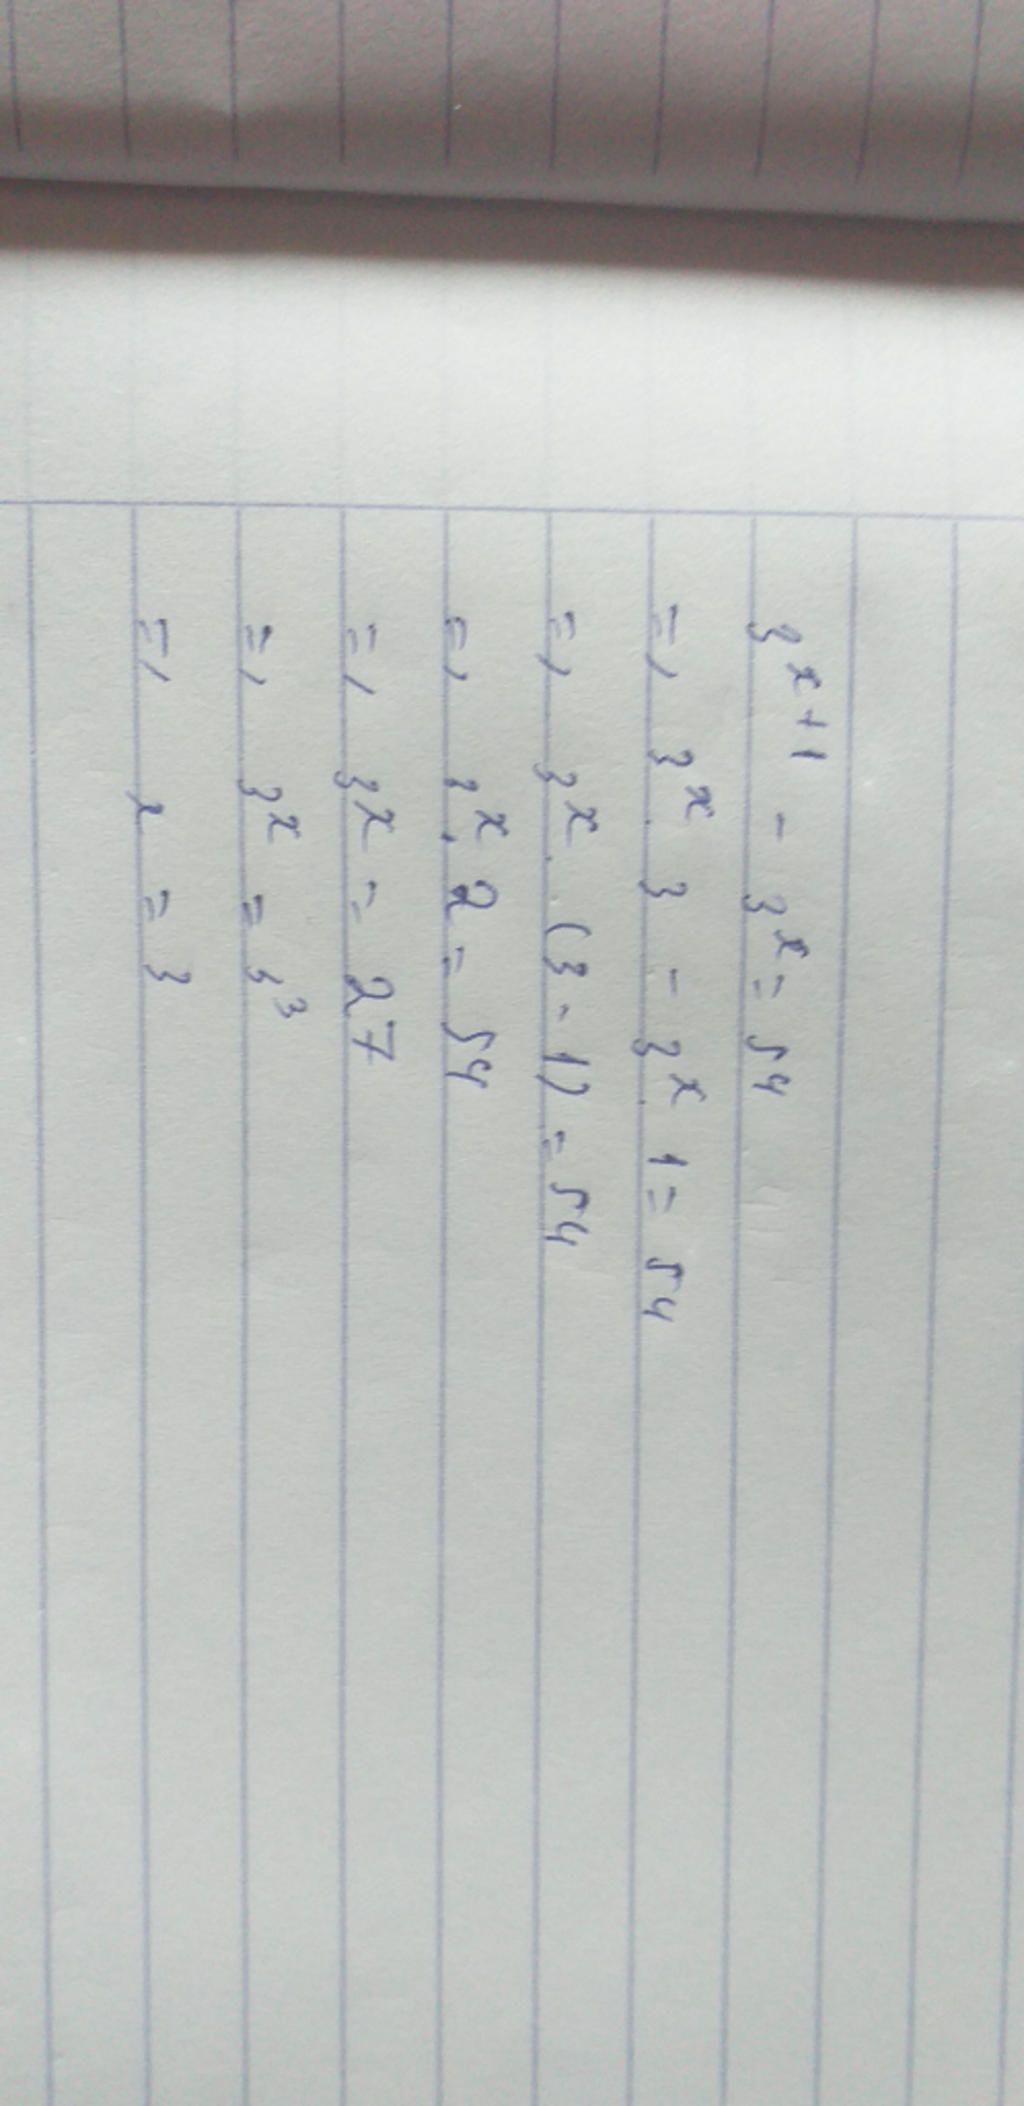 3^{x+1} - 3^x = 54
=, 3^x. 3 - 3^x. 1 = 54
=, 3^x. (3 - 1) = 54
=, 3^x. 2 = 54
=, 3^x = 27
=, 3^x = 3^3
=, x = 3